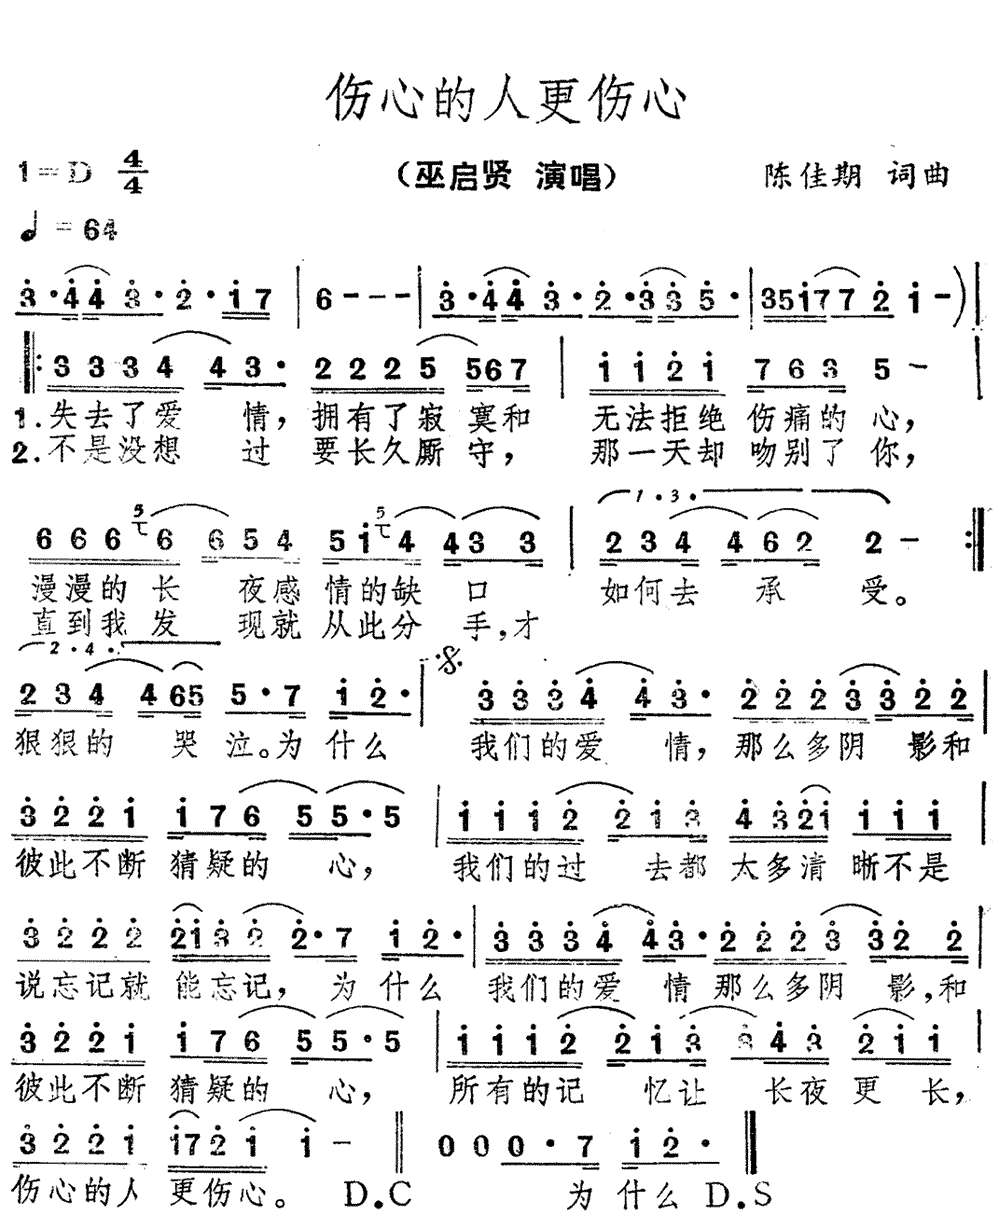 伤心的人更伤心
1=D 4/4 (巫启贤 演唱) 陈佳期 词曲
♩=64
3·44 3· 2· 17 | 6--- | 3·44 3· 2·33 5· | 35177 2 1-)
3334 43· 2225 567 | 1121 763 5-
1.失去了爱 情,拥有了寂 寞和 无法拒绝 伤痛的 心,
2.不是没想 过 要长久厮 守, 那一天却 吻别了 你,
5 5
6666 654 514 43 3 | 234 462 2- :|
1·3·
漫漫的长 夜感 情的缺 口 如何去 承 受。
直到我发 现就 从此分 手,才
2·4·
234 465 5·7 12· | 3334 43· 2223 322
狠狠的 哭泣。为 什么 我们的爱 情,那么多阴 影和
3221 176 55·5 | 1112 213 4321 111
彼此不断 猜疑的 心, 我们的过 去都 太多清 晰不是
3222 2132 2·7 12· | 3334 43· 2223 32 2
说忘记就 能忘记, 为 什么 我们的爱 情 那么多阴 影,和
3221 176 55·5 | 1112 213 343 211
彼此不断 猜疑的 心, 所有的记 忆让 长夜 更 长,
3221 1721 1- || 000·7 12· ||
伤心的人 更伤心。 D.C 为 什么 D.S